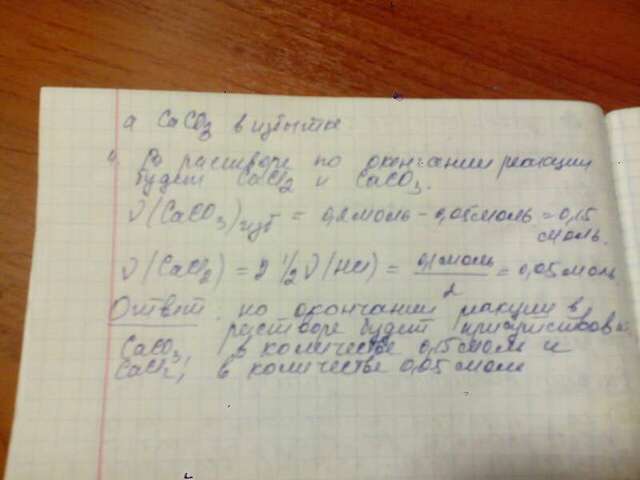 а CaCO3 в избытке
В растворе по окончании реакции
будет CaCl2 и CaCO3.
ν(CaCO3)изб = 0,2моль - 0,05моль = 0,15
моль.
ν(CaCl2) = 2 1/2 ν(HCl) = 0,1моль/2 = 0,05моль
Ответ: по окончании реакции в
растворе будет присутствовать
CaCO3, в количестве 0,15моль и
CaCl2, в количестве 0,05 моль